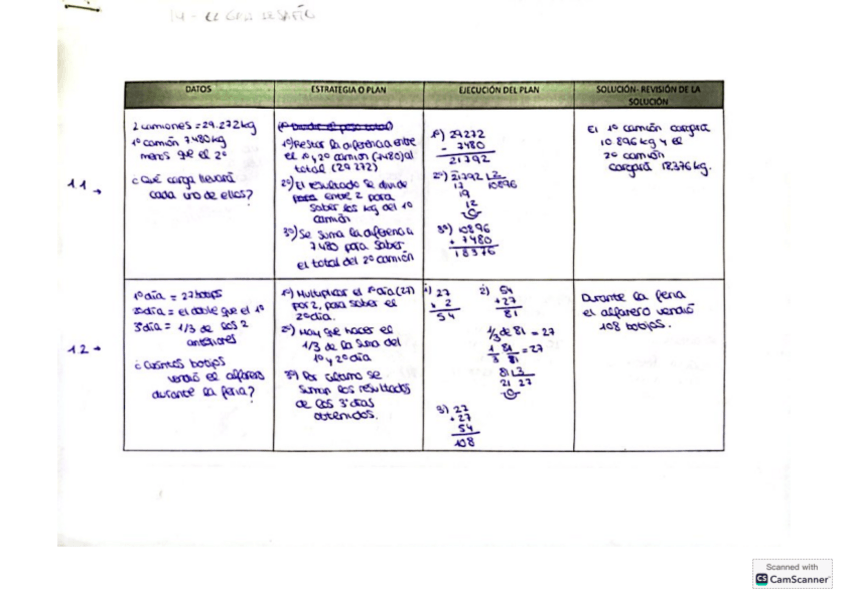 14 - El Gran desafío
DATOS
ESTRATEGIA O PLAN
EJECUCIÓN DEL PLAN
SOLUCIÓN- REVISIÓN DE LA
SOLUCIÓN
11 →
2 camiones = 29.272kg
1º camión 7480kg
menos que el 2º
¿Qué carga llevará
cada uno de ellos?
1º) Restar la diferencia entre
el 1º y 2º camión (7480) al
total (29272)
2º) El resultado se divide
para entre 2 para
saber los kg del 1º
camión
3º) Se suma la diferencia
7480 para saber
el total del 2º camión
1º) 29272
- 7480
21792
2º) 21792 | 2
17 10896
19
12
0
3º) 10896
+ 7480
18376
El 1º camión cargará
10896 kg y el
2º camión
cargará 18376 kg.
12 →
1º día = 27 botijos
2º día = el doble que el 1º
3º día = 1/3 de los 2
anteriores
¿Cuántos botijos
vendió el alfarero
durante la feria?
1º) Multiplicar el 1º día (27)
por 2, para saber el
2º día.
2º) Hay que hacer el
1/3 de la suma del
1º y 2º día
3º) Por último se
suman los resultados
de los 3 días
obtenidos.
1) 27
x 2
54
2) 54
+27
81
1/3 de 81 = 27
81 | 3
21 27
0
3) 27
+27
54
108
Durante la feria
el alfarero vendió
108 botijos.
Scanned with
CS CamScanner